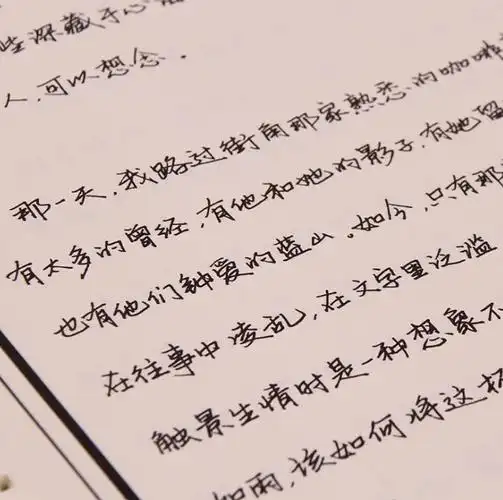 些深藏于心
人,可以想念。
那一天,我路过街角那家熟悉的咖啡
有太多的曾经,有他和她的影子,有她留
也有他们钟爱的蓝山。如今,只有那
在往事中凌乱,在文字里泛滥
触景生情时是一种想象不
如雨,该如何将这杯